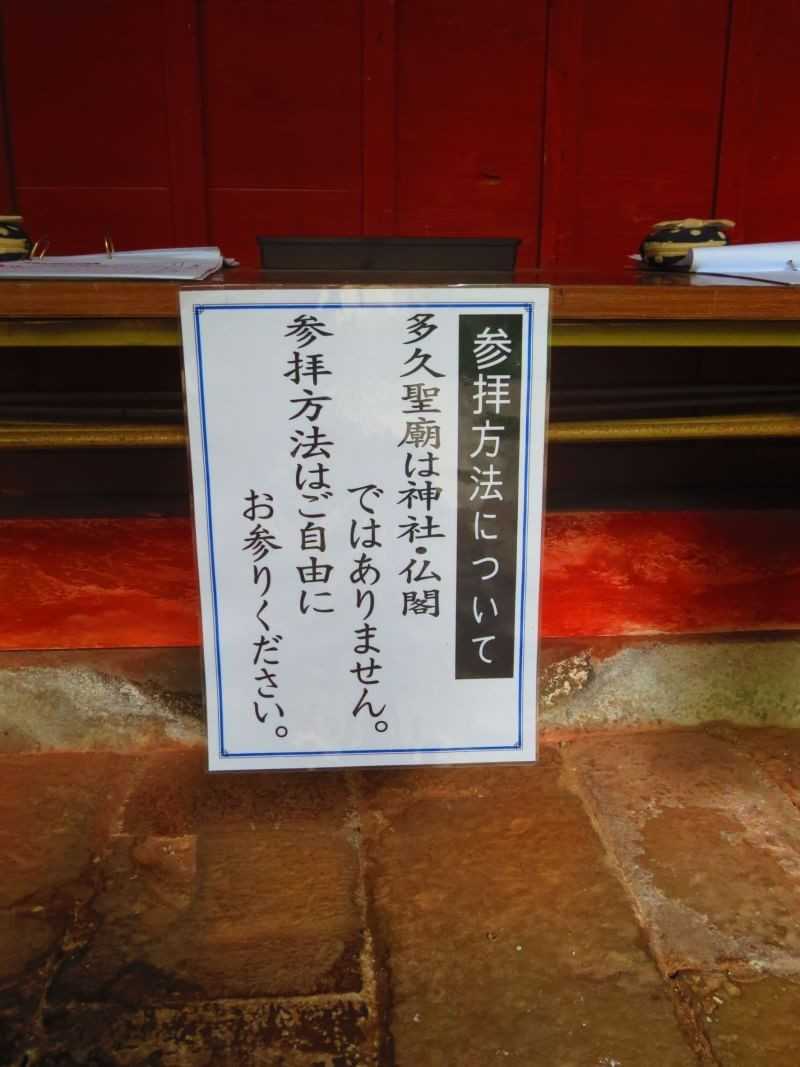 参拝方法について
多久聖廟は神社・仏閣
ではありません。
参拝方法はご自由に
お参りください。